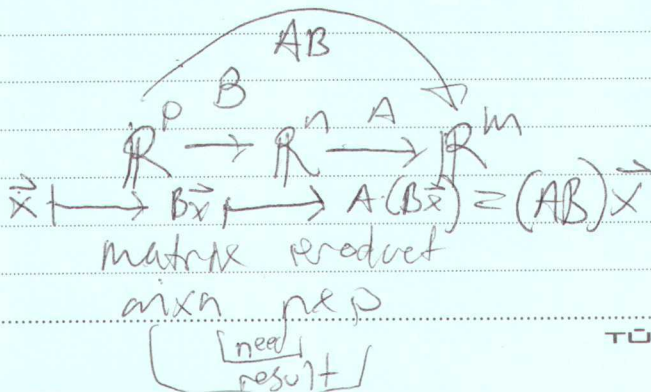 AB
B A
ℝᵖ → ℝⁿ → ℝᵐ
x⃗ ↦ Bx⃗ ↦ A(Bx⃗) = (AB)x⃗
matrix product
mxn nxp
need
result
TÜ